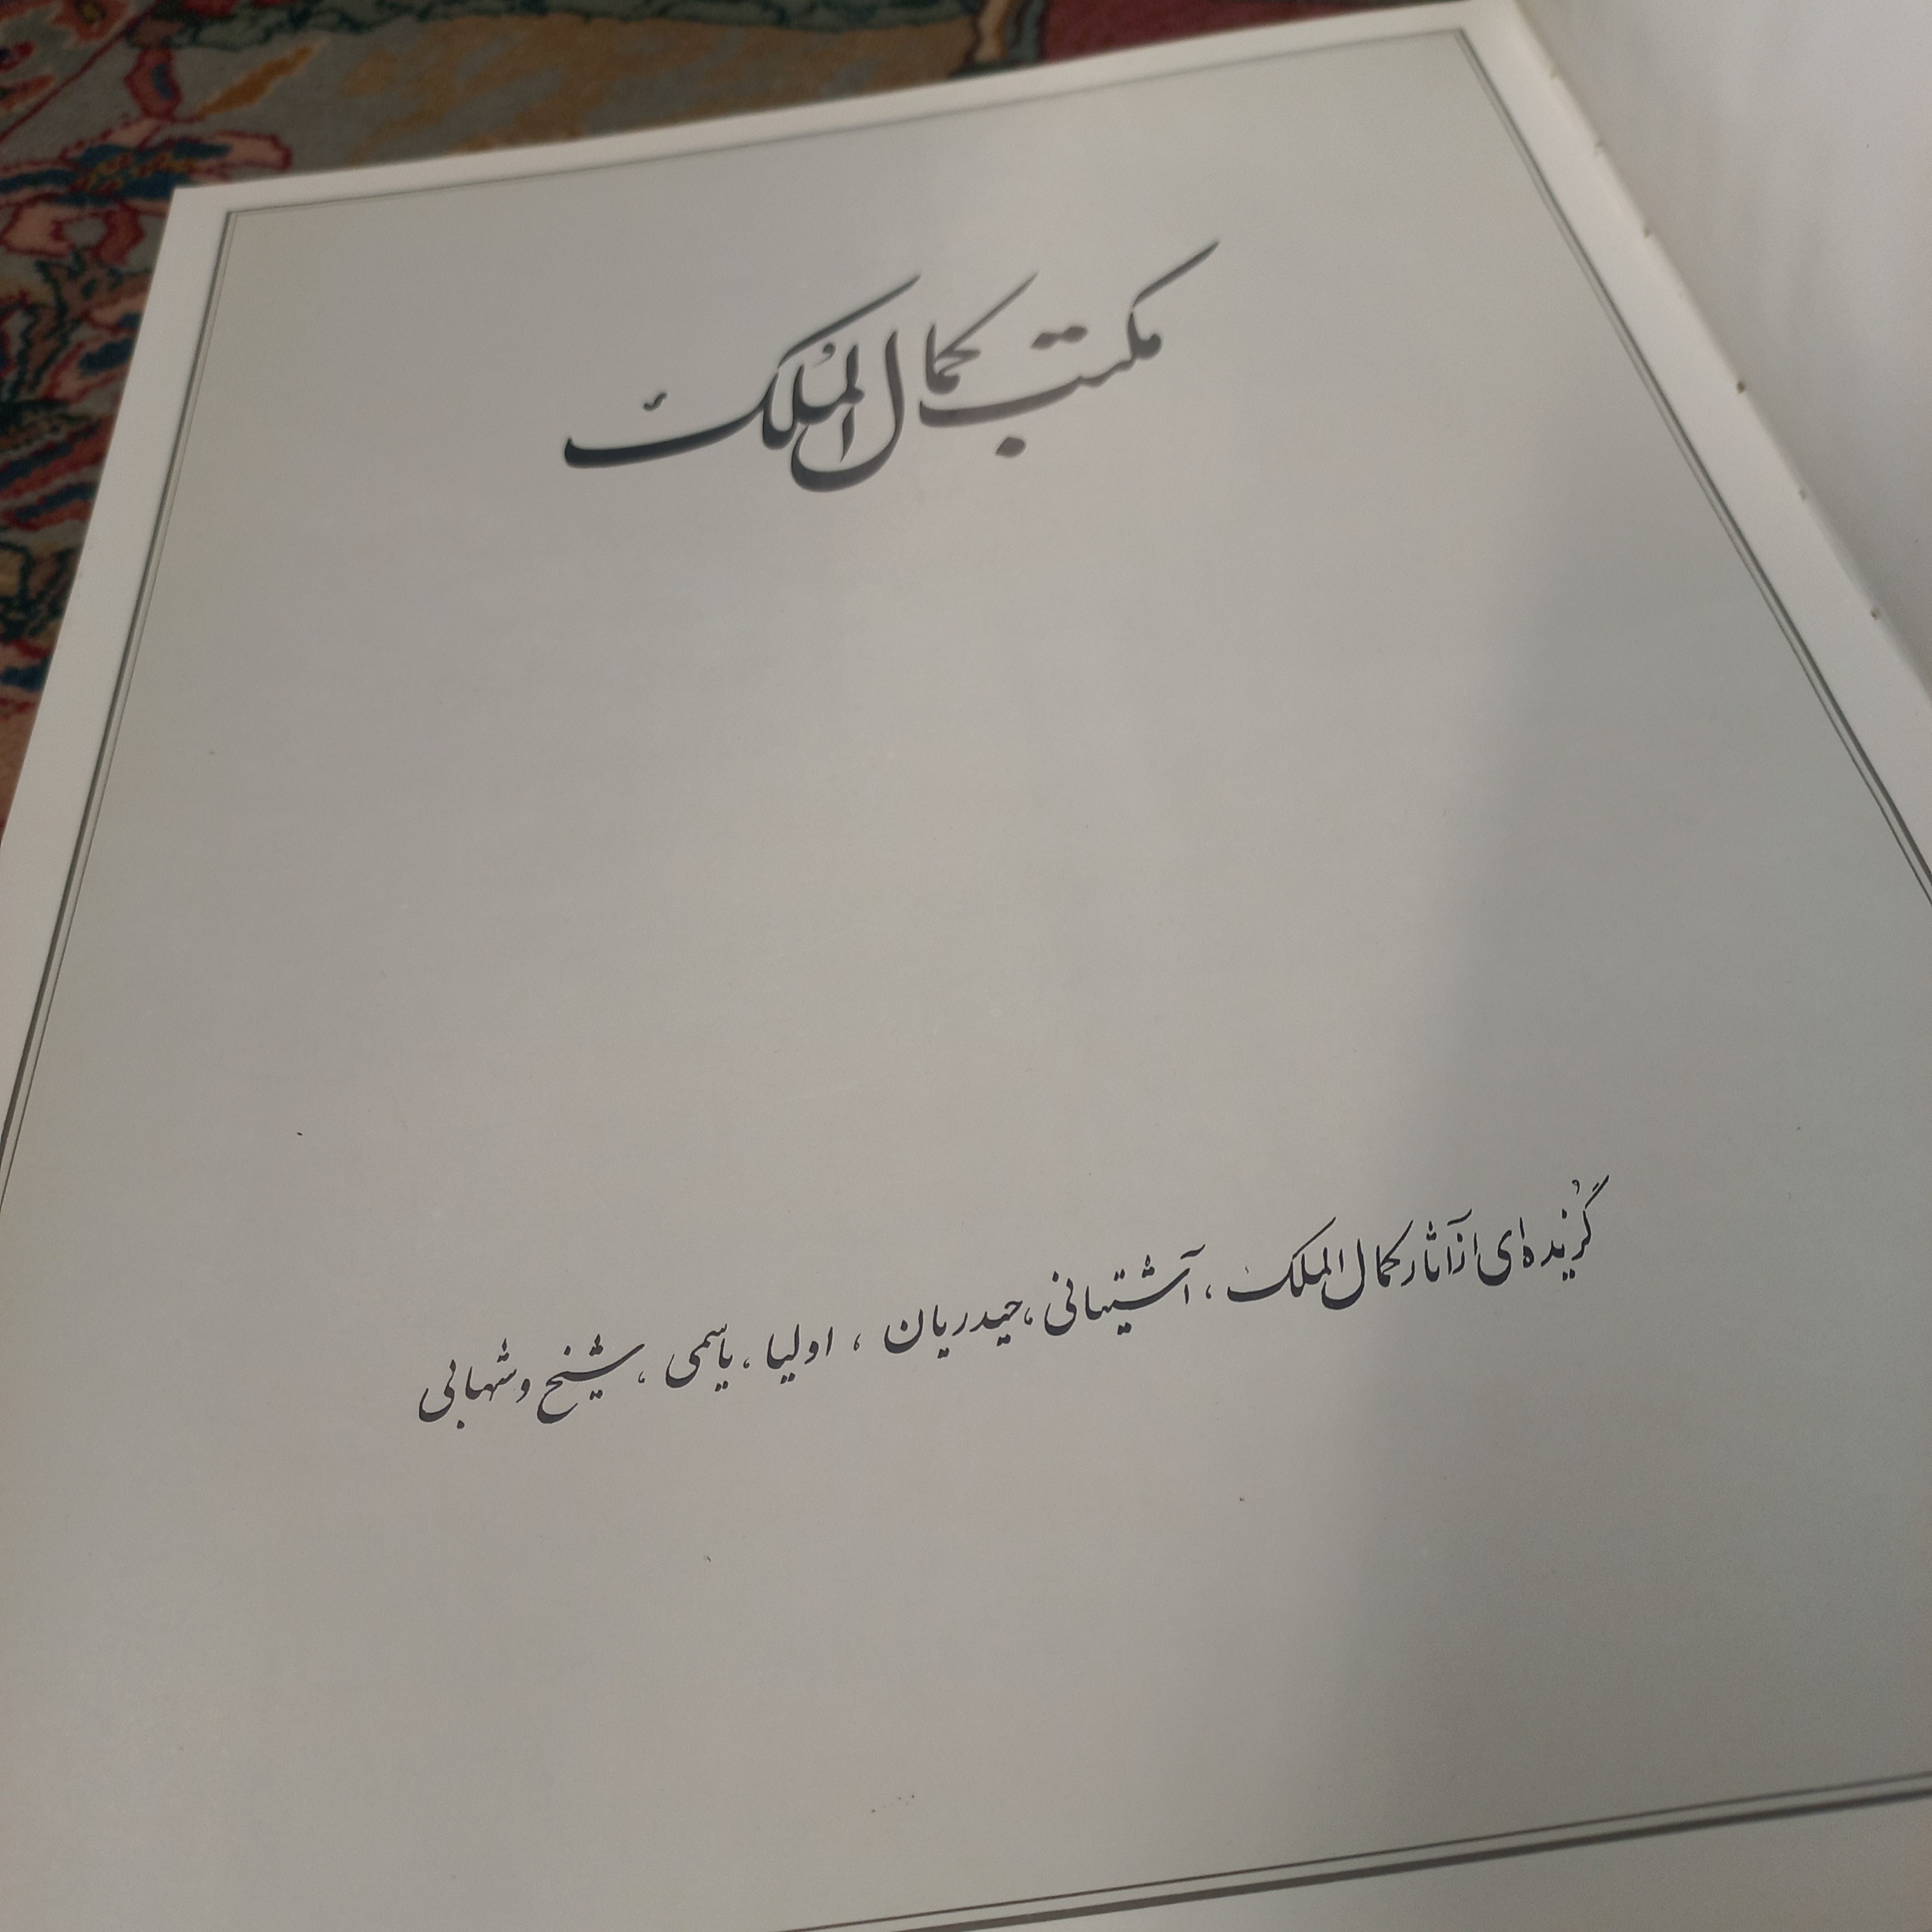 مکتب کمال المُلک
گُزیده‌ای از آثار کمال الملک، آشتیانی، حیدریان، اولیا، یاسمی، شیخ و شهابی